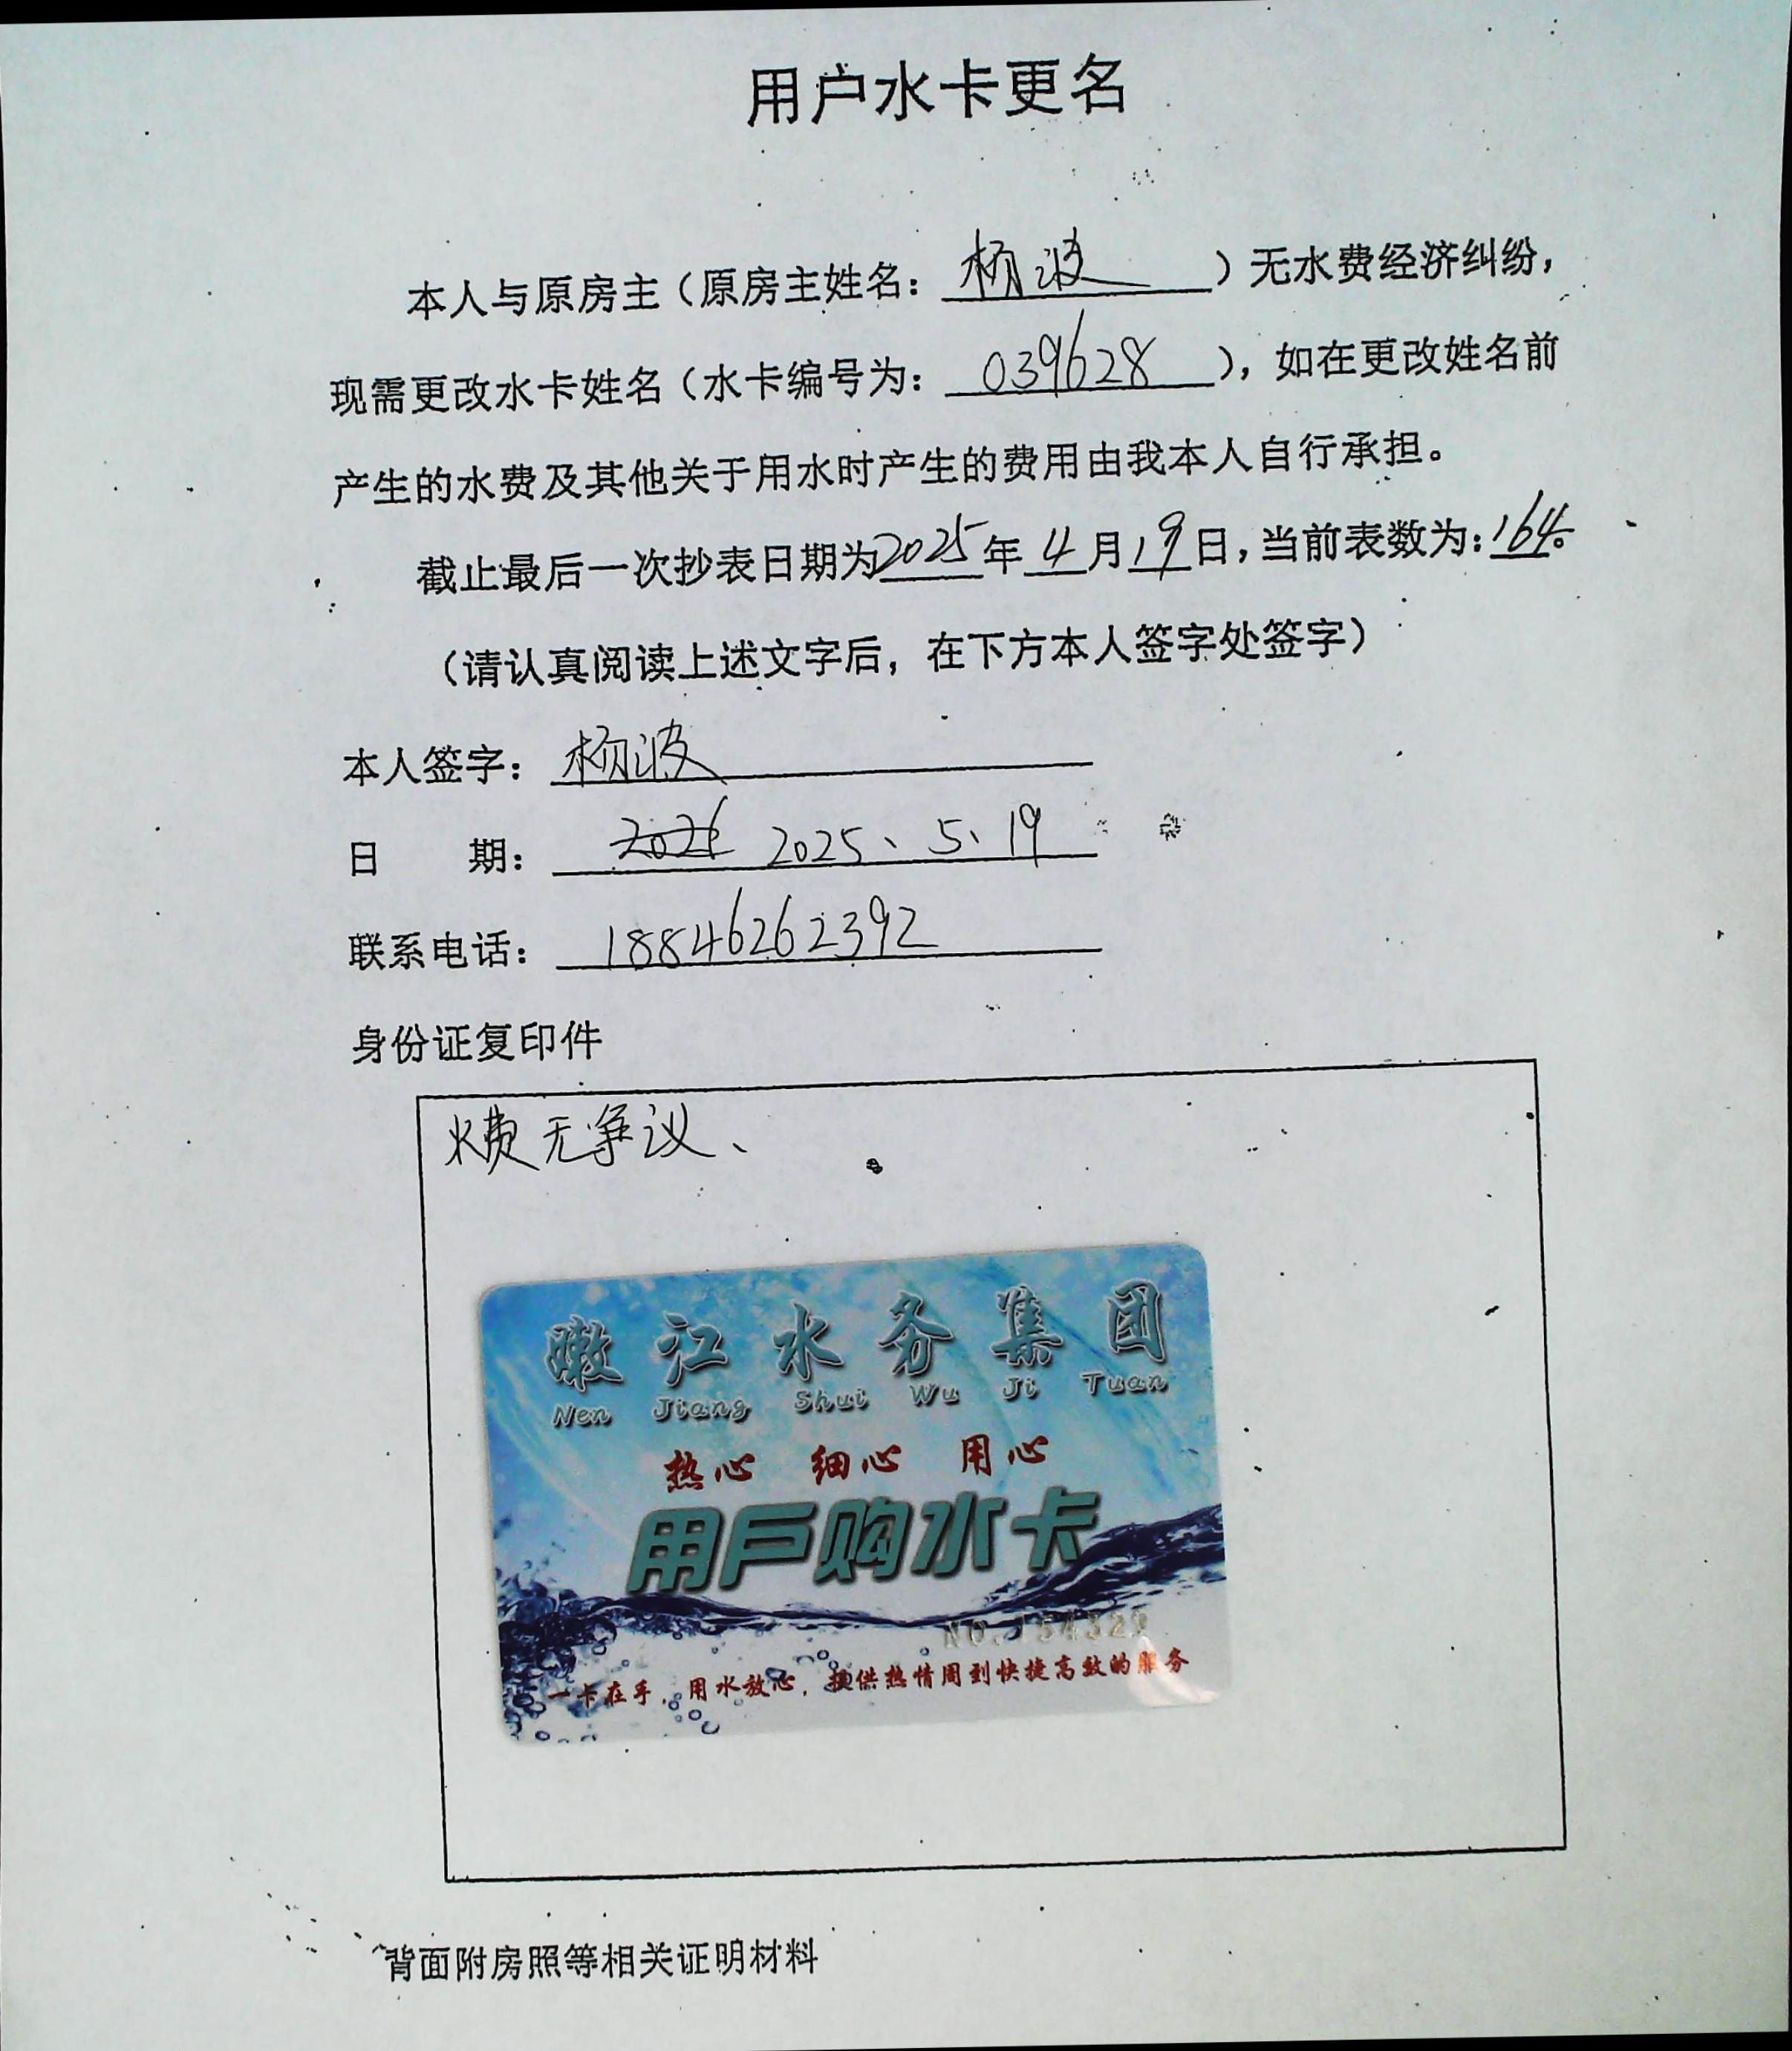 用户水卡更名
本人与原房主（原房主姓名：杨波）无水费经济纠纷，
现需更改水卡姓名（水卡编号为：039628），如在更改姓名前
产生的水费及其他关于用水时产生的费用由我本人自行承担。
截止最后一次抄表日期为2025年4月19日，当前表数为：164。
（请认真阅读上述文字后，在下方本人签字处签字）
本人签字：杨波
日期：2025、5、19
联系电话：18846262392
身份证复印件
水费无争议、
嫩江水务集团
Nen Jiang Shui Wu Ji Tuan
热心 细心 用心
用户购水卡
一卡在手，用水放心，提供热情周到快捷高效的服务
背面附房照等相关证明材料